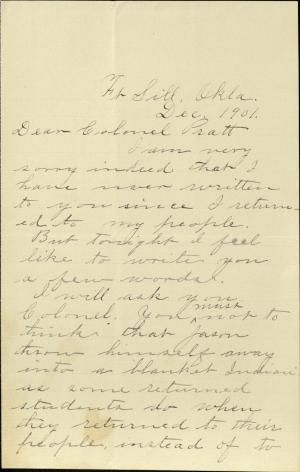 Ft Sill, Okla.
Dec, 1901.
Dear Colonel Pratt
I am very
sorry indeed that I
have never written
to you since I return-
ed to my people.
But tonight I feel
like to write you
a few words.
I will ask you
Colonel. You must not to
think that Jason
throw himself away
into a blanket Indian
as some returned
students do when
they returned to their
people, instead of to